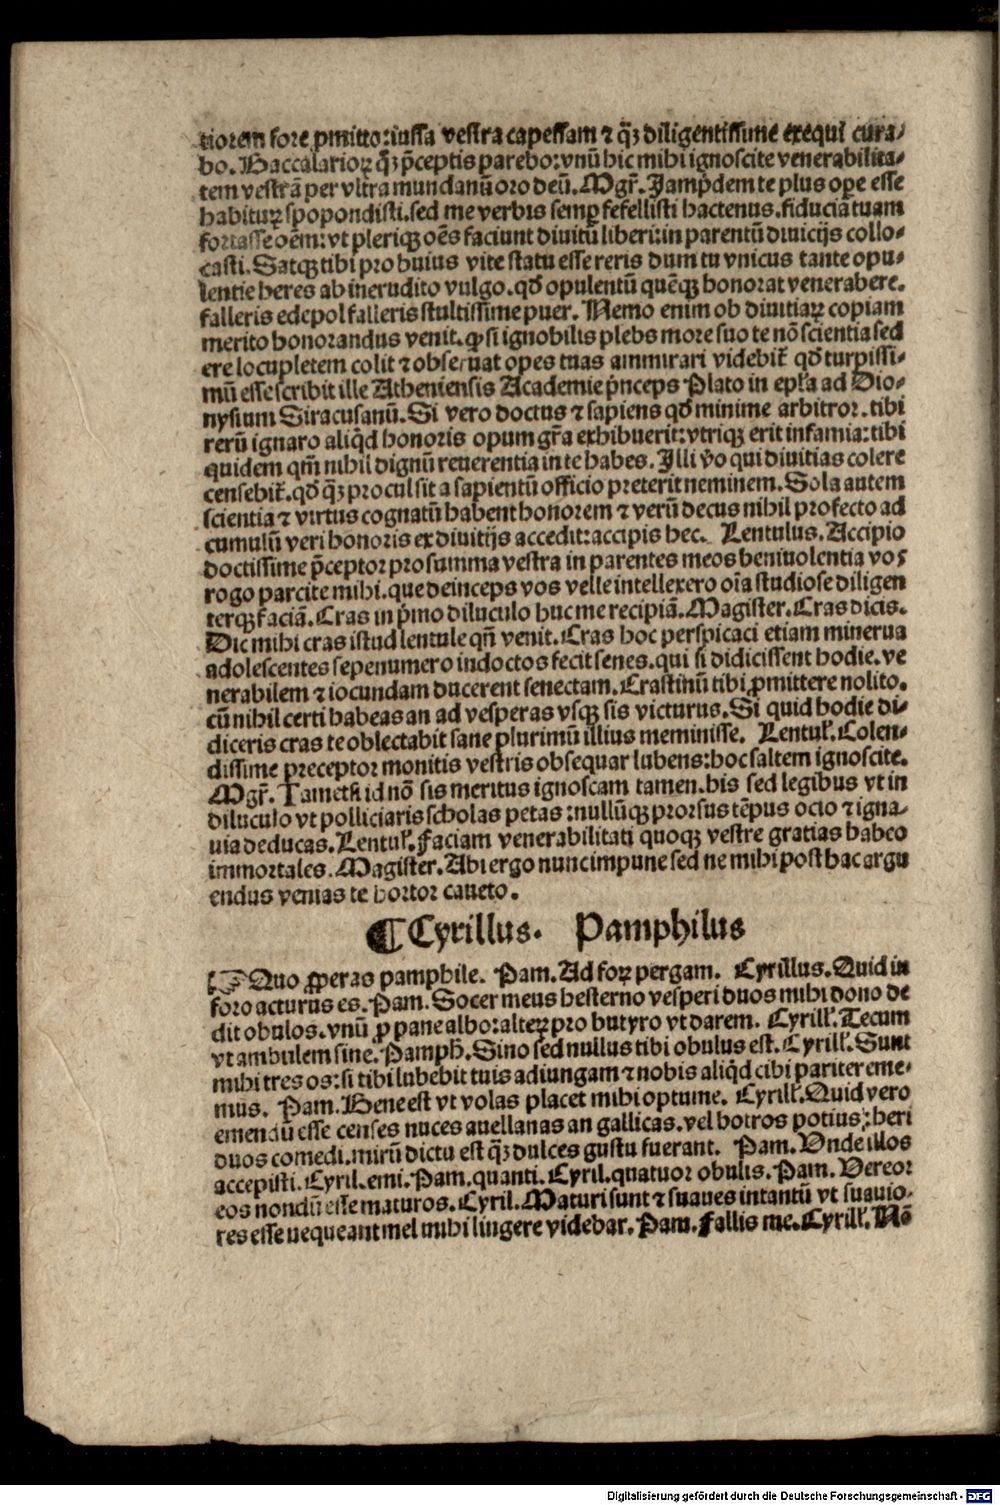 tiorem fore ꝓmitto: iussa vestra capessam ⁊ q̃ꝫ diligentissime exequi cura⸗
bo. Baccalarioꝝ q̃ꝫ p̃ceptis parebo: vnũ hic mihi ignoscite venerabilita⸗
tem vestrã per vltra mundanũ oro deũ. Mgr̃. Jampridem te plus oꝑe esse
habituꝝ spopondisti. sed me verbis semꝑ fefellisti hactenus. fiduciã tuam
fortasse oẽm: vt pleriqꝫ oẽs faciunt divitũ liberi: in parentũ diuicijs collo⸗
casti. Satqꝫ tibi pro huius vite statu esse reris dum tu vnicus tante opu⸗
lentie heres ab inerudito vulgo. qď opulentũ quẽqꝫ honorat venerabere.
falleris edepol falleris stultissime puer. Nemo enim ob diuitiaꝝ copiam
merito honorandus venit. ꝙ si ignobilis plebs more suo te nõ scientia sed
ere locupletem colit ⁊ obseruat opes tuas ammirari videbit̃. qď turpissi⸗
mũ esse scribit ille Atheniensis Academie p̃nceps Plato in epl̃a ad Dio⸗
nysium Siracusanũ. Si vero doctus ⁊ sapiens qď minime arbitror. tibi
rerũ ignaro aliq̃d honoris opum gr̃a exhibuerit: vtriqꝫ erit infamia: tibi
quidem qm̃ nihil dignũ reuerentia in te habes. Illi v̊o qui diuitias colere
censebit̃. qď q̃ꝫ procul sit a sapientũ officio preterit neminem. Sola autem
scientia ⁊ virtus cognatũ habent honorem ⁊ verũ decus nihil profecto ad
cumulũ veri honoris ex diuitijs accedit: accipis hec. Lentulus. Accipio
doctissime p̃ceptor pro summa vestra in parentes meos beniuolentia vos
rogo parcite mihi. que deinceps vos velle intellexero oĩa studiose diligen
terqꝫ faciã. Cras in p̃mo diluculo huc me recipiã. Magister. Cras dicis.
Dic mihi cras istud lentule qñ venit. Cras hoc perspicaci etiam minerua
adolescentes sepenumero indoctos fecit senes. qui si didicissent hodie. ve
nerabilem ⁊ iocundam ducerent senectam. Crastinũ tibi ꝓmittere nolito.
cũ nihil certi habeas an ad vesperas vsqꝫ sis victurus. Si quid hodie di⸗
diceris cras te oblectabit sane plurimũ illius meminisse. Lentul̃. Colen⸗
dissime preceptor monitis vestris obsequar lubens: hoc saltem ignoscite.
Mgr̃. Tametsi id nõ sis meritus ignoscam tamen. his sed legibus vt in
diluculo vt polliciaris scholas petas: nullũqꝫ prorsus tẽpus ocio ⁊ igna⸗
uia deducas. Lentul̃. Faciam venerabilitati quoqꝫ vestre gratias habeo
immortales. Magister. Abi ergo nunc impune sed ne mihi post hac argu
endus venias te hortor caueto.
¶ Cyrillus. Pamphilus
QUo ꝓperas pamphile. Pam. Ad foꝝ pergam. Cyrillus. Quid in
foro acturus es. Pam. Socer meus hesterno vesperi duos mihi dono de
dit obulos. vnũ ꝓ pane albo: alteꝝ pro butyro vt darem. Cyrill̃. Tecum
vt ambulem sine. Pamph̃. Sino sed nullus tibi obulus est. Cyrill̃. Sunt
mihi tres os: si tibi lubebit tuis adiungam ⁊ nobis aliq̃d cibi pariter eme⸗
mus. Pam. Bene est vt volas placet mihi optume. Cyrill̃. Quid vero
emendũ esse censes nuces auellanas an gallicas. vel botros potius: heri
duos comedi. mirũ dictu est q̃ꝫ dulces gustu fuerant. Pam. Vnde illos
accepisti. Cyril. emi. Pam. quanti. Cyril. quatuor obulis. Pam. Vereor
eos nondũ esse maturos. Cyril. Maturi sunt ⁊ suaues intantũ vt suauio⸗
res esse nequeant mel mihi lingere videbar. Pam. Fallis me. Cyrill̃. Nõ
Digitalisierung gefördert durch die Deutsche Forschungsgemeinschaft - DFG